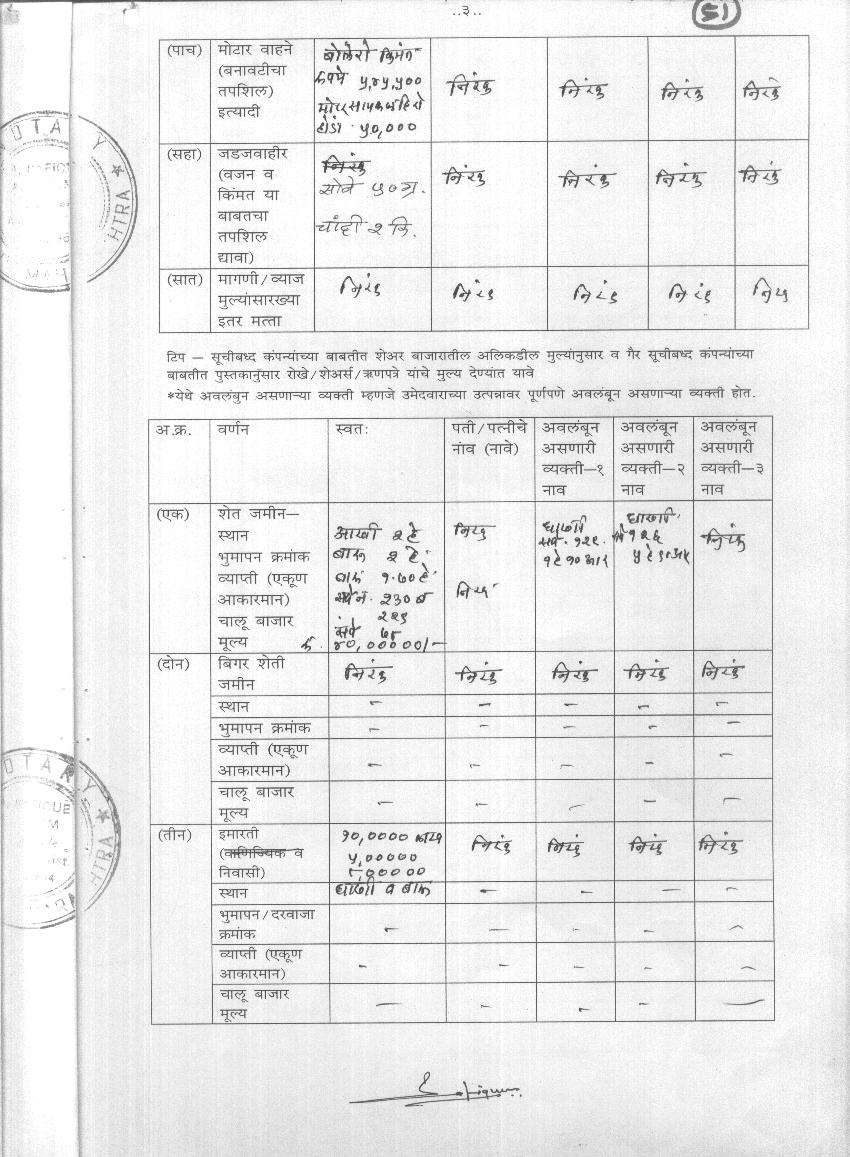 ..३..
(पाच) मोटार वाहने (बनावटीचा तपशिल) इत्यादी बोलेरो किमंत रुपये ५,४५,५०० मोटरसायकल हिरो होंडा ५०,००० निरंक निरंक निरंक निरंक
(सहा) जडजवाहीर (वजन व किंमत या बाबतचा तपशिल द्यावा) सोने ५० ग्र. चांदी २ कि. निरंक निरंक निरंक निरंक
(सात) मागणी/व्याज मुल्यांसारख्या इतर मत्ता निरंक निरंक निरंक निरंक निरंक
टिप — सूचीबध्द कंपन्यांच्या बाबतीत शेअर बाजारातील अलिकडील मुल्यांनुसार व गैर सूचीबध्द कंपन्यांच्या
बाबतीत पुस्तकानुंसार रोखे/शेअर्स/ऋणपत्रे यांचे मुल्य देण्यांत यावे
*येथे अवलंबुन असणाऱ्या व्यक्ती म्हणजे उमेदवाराच्या उत्पन्नावर पूर्णपणे अवलंबून असणाऱ्या व्यक्ती होत.
अ.क्र. वर्णन स्वतः पती/पत्नीचे नांव (नावे) अवलंबून असणारी व्यक्ती—१ नाव अवलंबून असणारी व्यक्ती—२ नाव अवलंबून असणारी व्यक्ती—३ नाव
(एक) शेत जमीन—
स्थान
भुमापन क्रमांक
व्याप्ती (एकूण
आकारमान)
चालू बाजार
मूल्य
२ हे
२ हे.
१.७० हे.
२३० व
२२९
७५
४०,०००००/—
निरंक
निरंक
१२९
१ हे १० आर
१२६
निरंक
(दोन) बिगर शेती जमीन निरंक निरंक निरंक निरंक निरंक
स्थान – – – – –
भुमापन क्रमांक – – – – –
व्याप्ती (एकूण आकारमान) – – – – –
चालू बाजार मूल्य – – – – –
(तीन) इमारती (वाणिज्यिक व निवासी) १०,०००० ५,००००० ८,००००० निरंक निरंक निरंक निरंक
स्थान – – – –
भुमापन/दरवाजा क्रमांक – – – – –
व्याप्ती (एकूण आकारमान) – – – – –
चालू बाजार मूल्य – – – – –
NOTARY
HTRA
NOTARY
HTRA